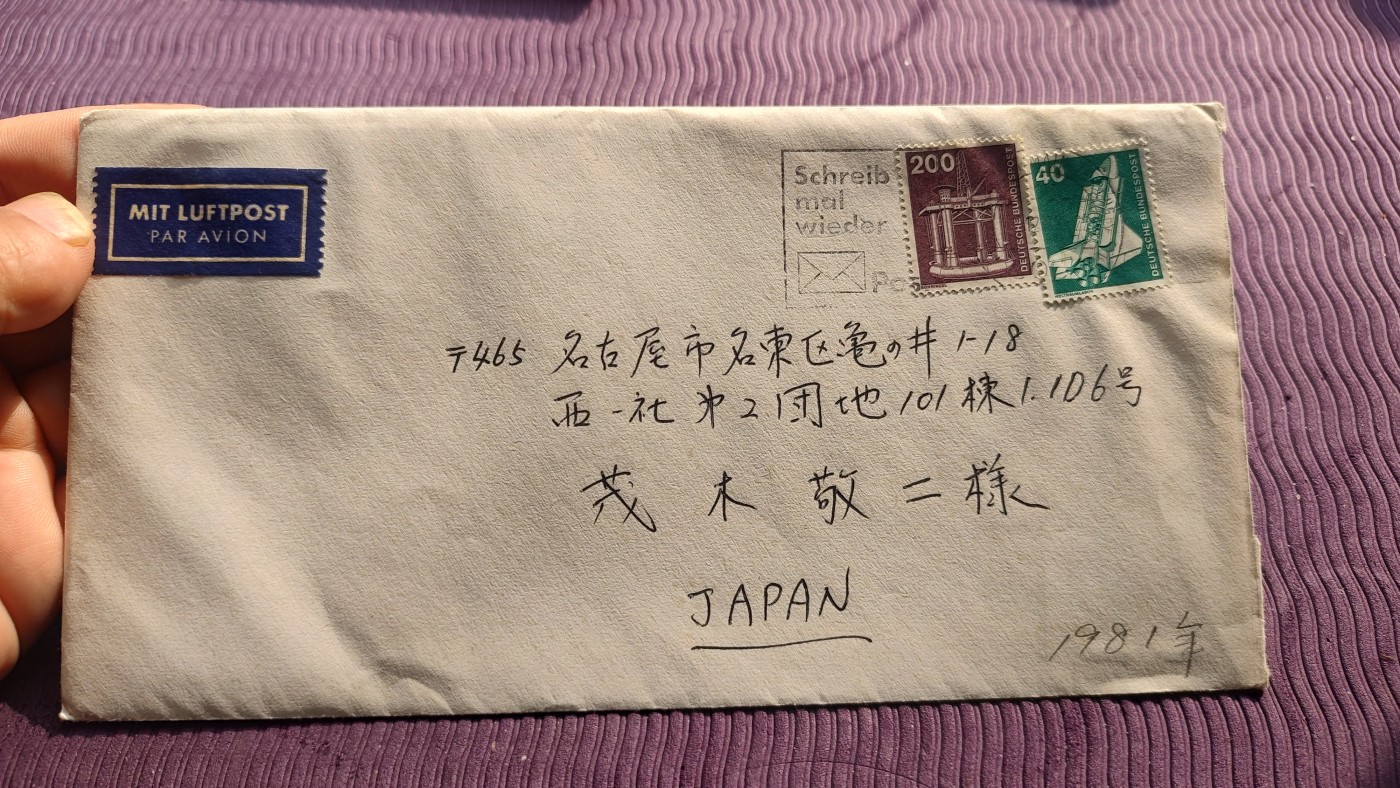 MIT LUFTPOST
PAR AVION
Schreib
mal
wieder
Pos
200
DEUTSCHE BUNDESPOST
40
DEUTSCHE BUNDESPOST
〒465 名古屋市名東区亀の井1-18
西一社第2団地101棟1.106号
茂木敬二様
JAPAN
1981年